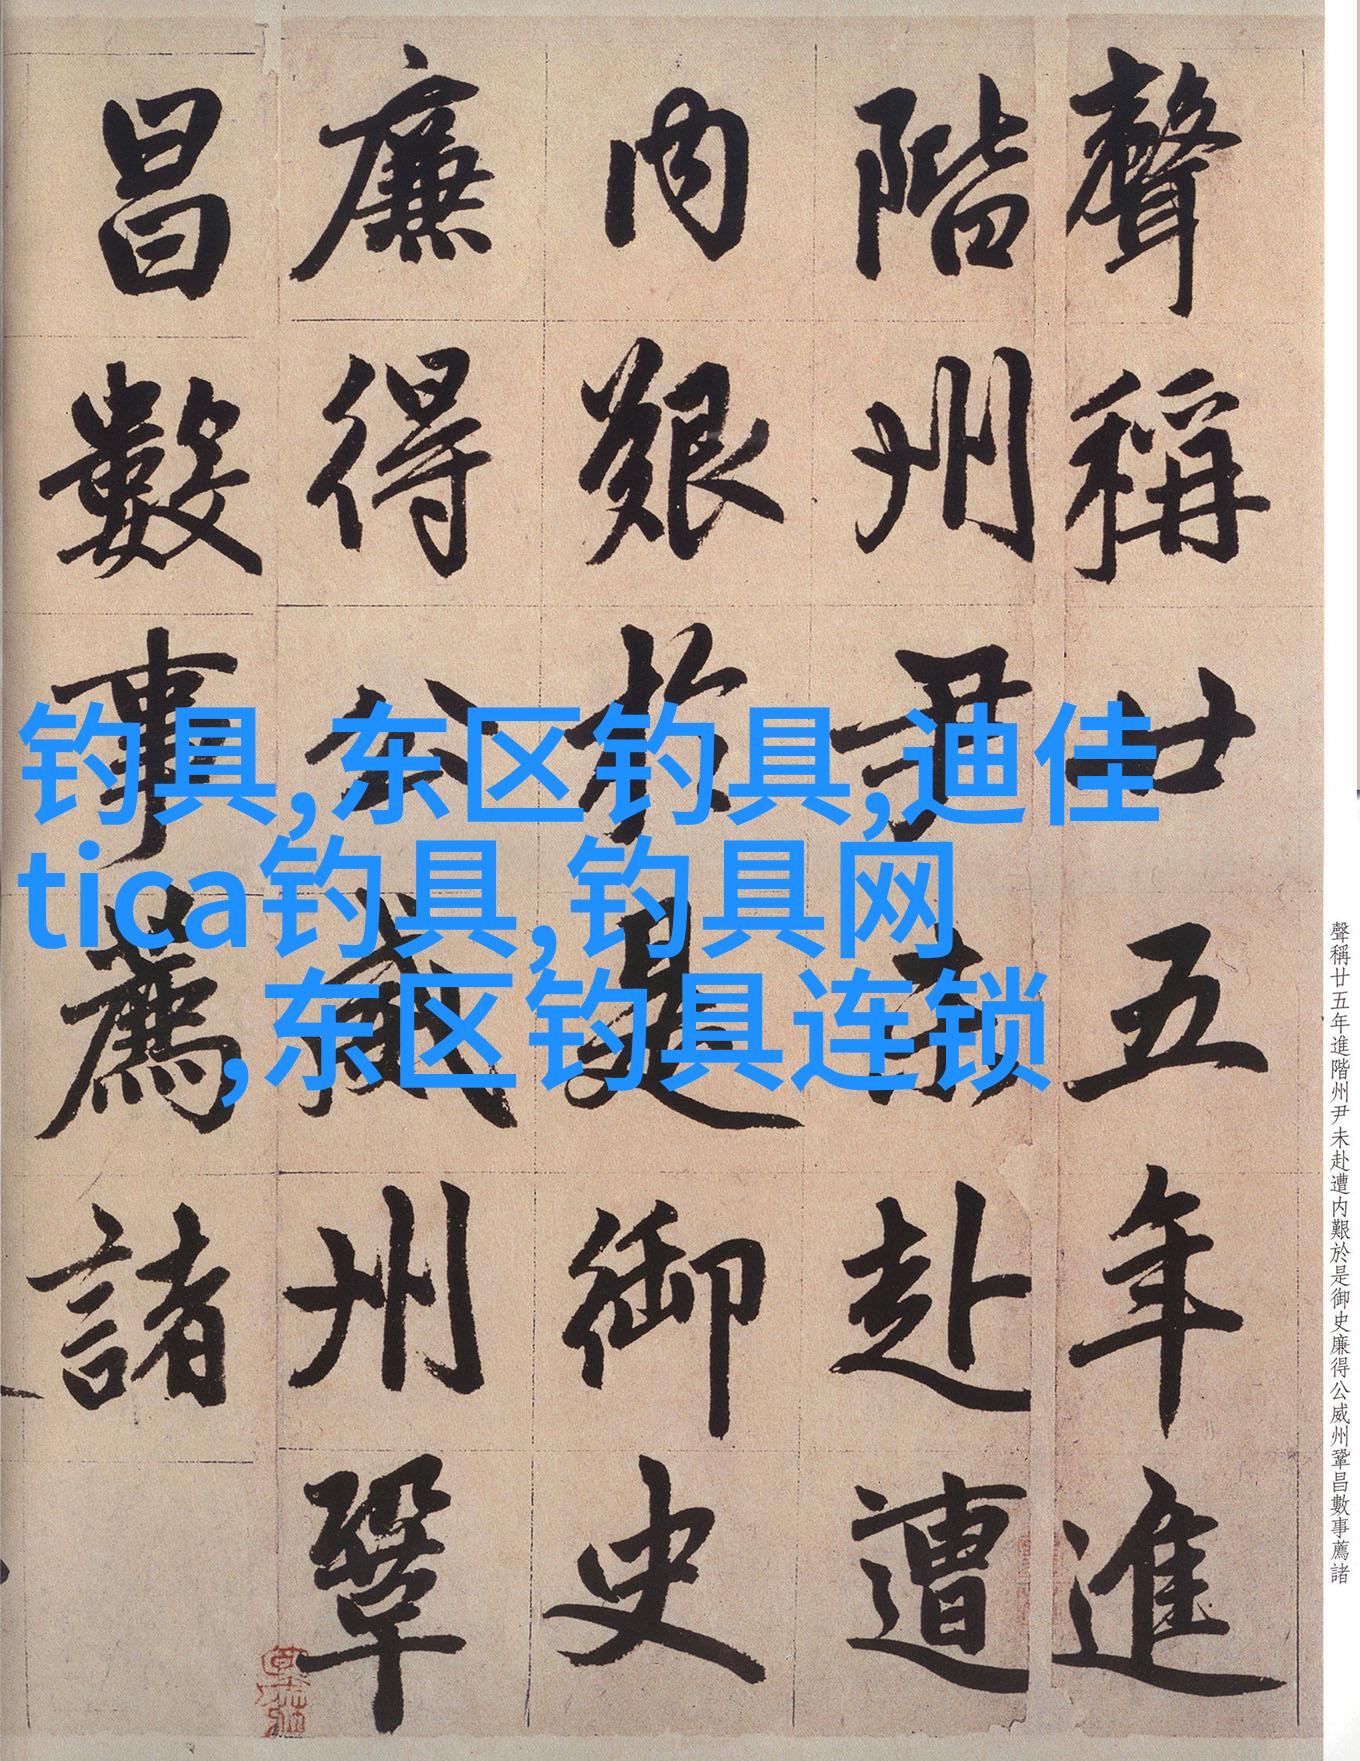 聲稱廿五年進
階州尹未赴遭
内艱於是御史
廉得公威州鞏
昌數事薦諸
钓具,东区钓具,迪佳
tica钓具,钓具网
,东区钓具连锁
聲稱廿五年進階州尹未赴遭内艱於是御史廉得公威州鞏昌數事薦諸